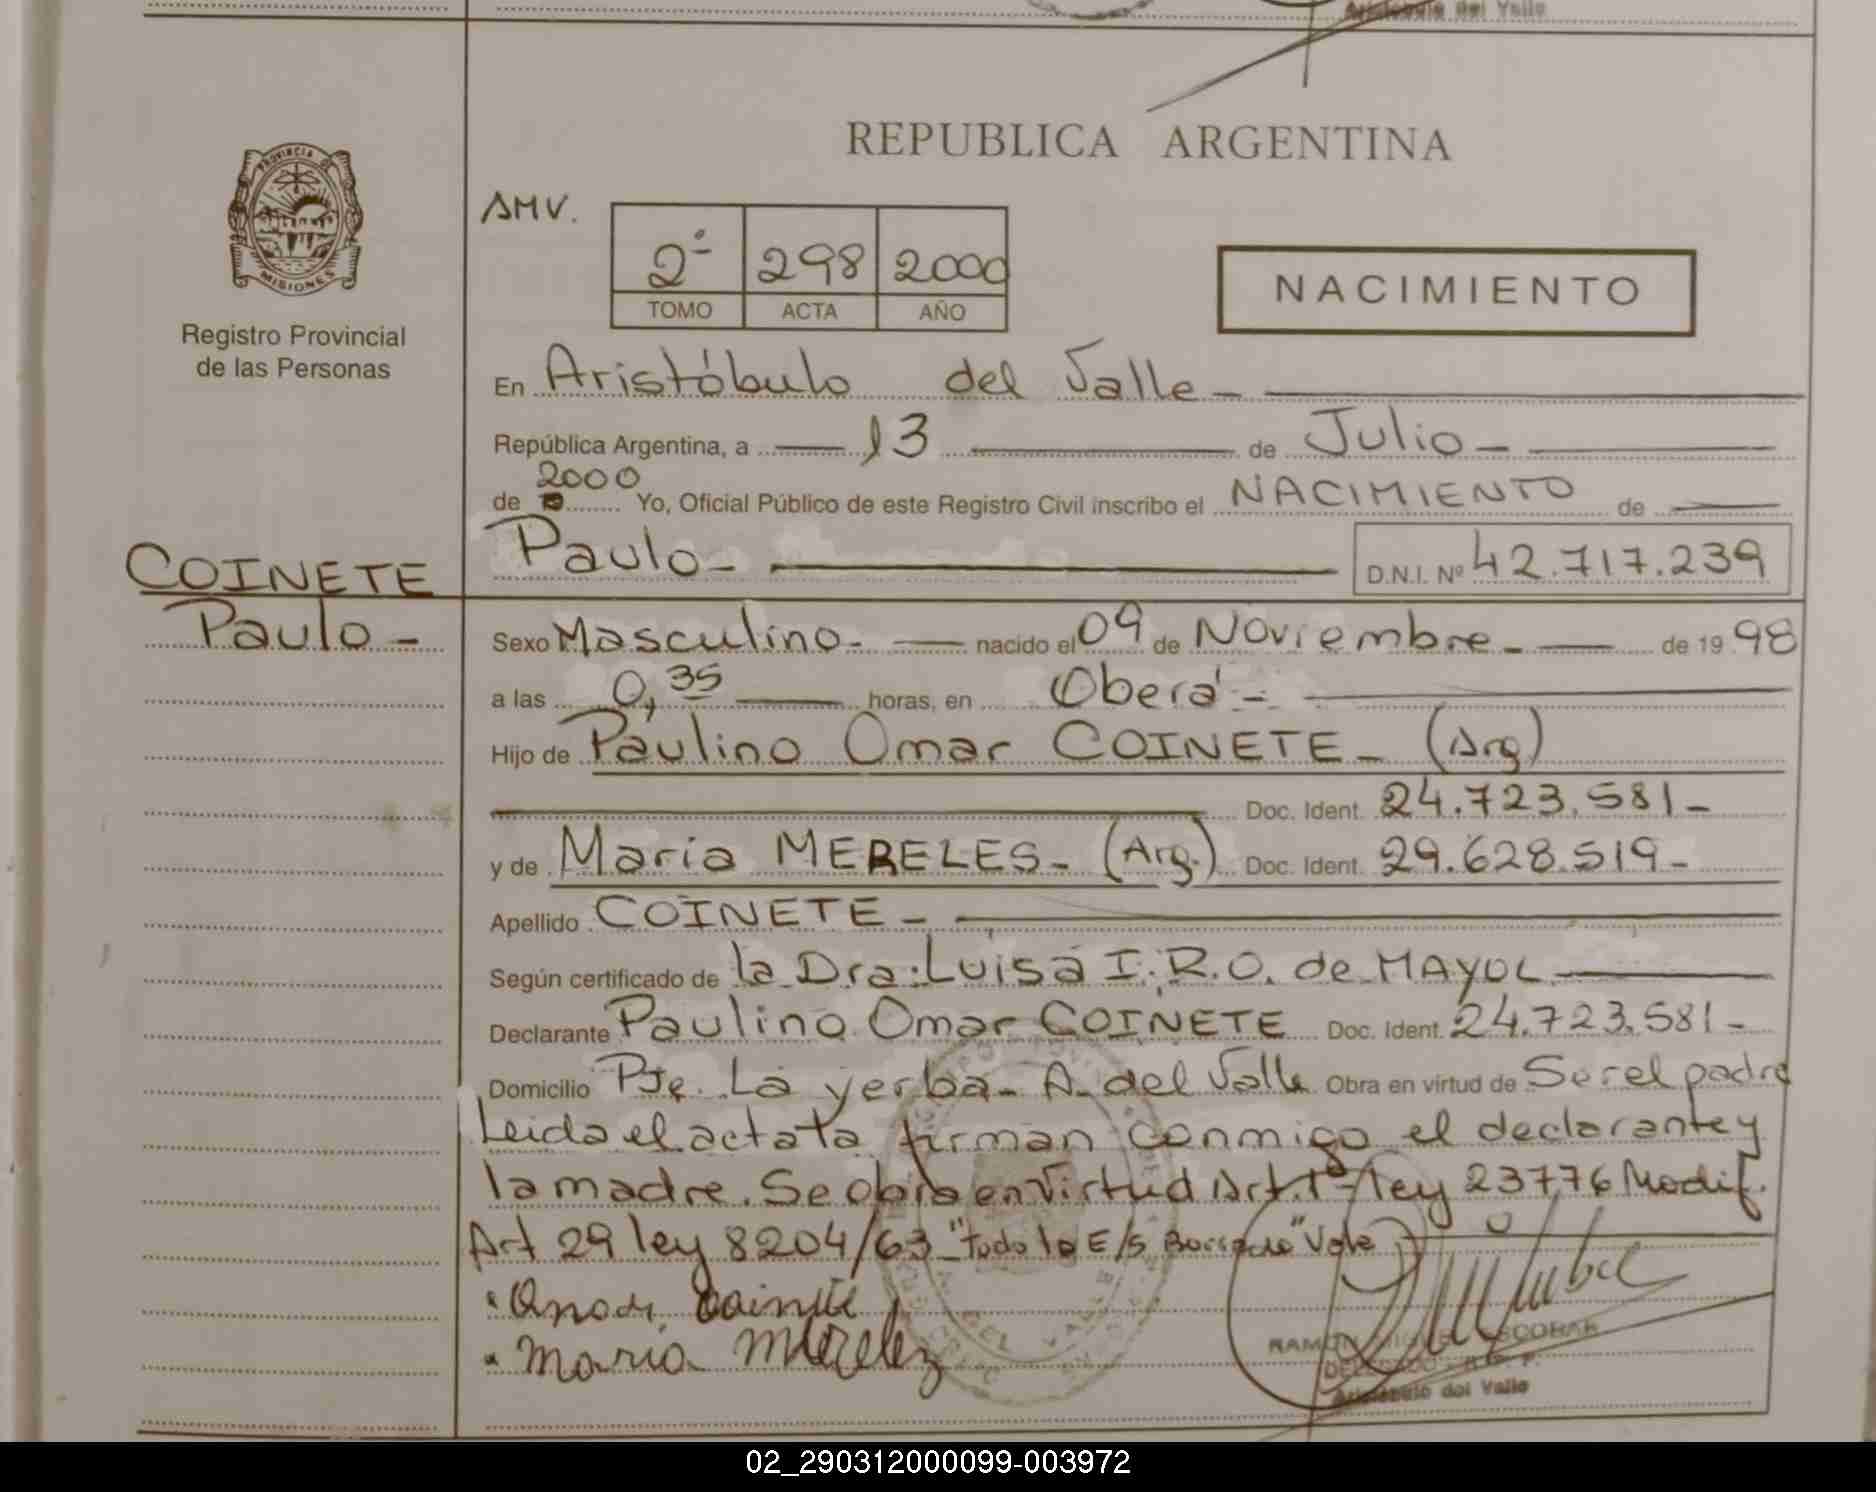 Aristobulo del Valle
PROVINCIA D
MISIONES
Registro Provincial
de las Personas
COINETE
Paulo -
REPUBLICA ARGENTINA
AMV.
2º 298 2000
TOMO ACTA AÑO
NACIMIENTO
En Aristóbulo del Valle -
República Argentina, a 13 de Julio -
2000
de Yo, Oficial Público de este Registro Civil inscribo el NACIMIENTO de
Paulo - D.N.I. Nº 42.717.239
Sexo Masculino - nacido el 09 de Noviembre - de 19 98
a las 0,35 horas, en Oberá -
Hijo de Paulino Omar COINETE - (Arg)
Doc. Ident. 24.723.581 -
y de Maria MERELES - (Arg.) Doc. Ident. 29.628.519 -
Apellido COINETE -
Según certificado de la Dra. Luisa I. R. O. de MAYOL
Declarante Paulino Omar COINETE Doc. Ident. 24.723.581 -
Domicilio Pje. La yerba - A. del Valle Obra en virtud de Ser el padre
Leida el acta la firman conmigo el declarante y
la madre. Se obra en Virtud Art. 1º ley 23776 Modif.
Art 29 ley 8204/63 - "Todo lo E/S Borrado" Vale
Omar Coinete
Maria Merelez
RAMON MIGUEL ESCOBAR
DELEGADO R. P.
Aristobulo del Valle
02_290312000099-003972